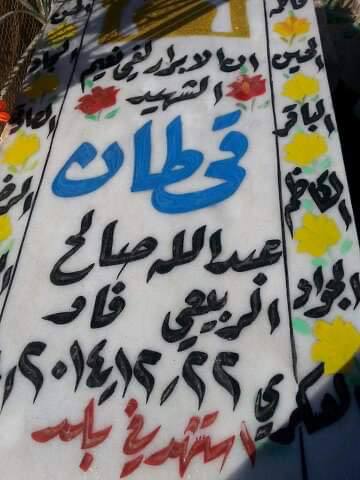 ان الابرار لفي نعيم
الشهيد
قحطان
عبدالله صالح
الربيعي
٢٠١٤/١٢/٢٢
استشهد في بلد
الحسن
الباقر
الكاظم
الجواد
العسكري